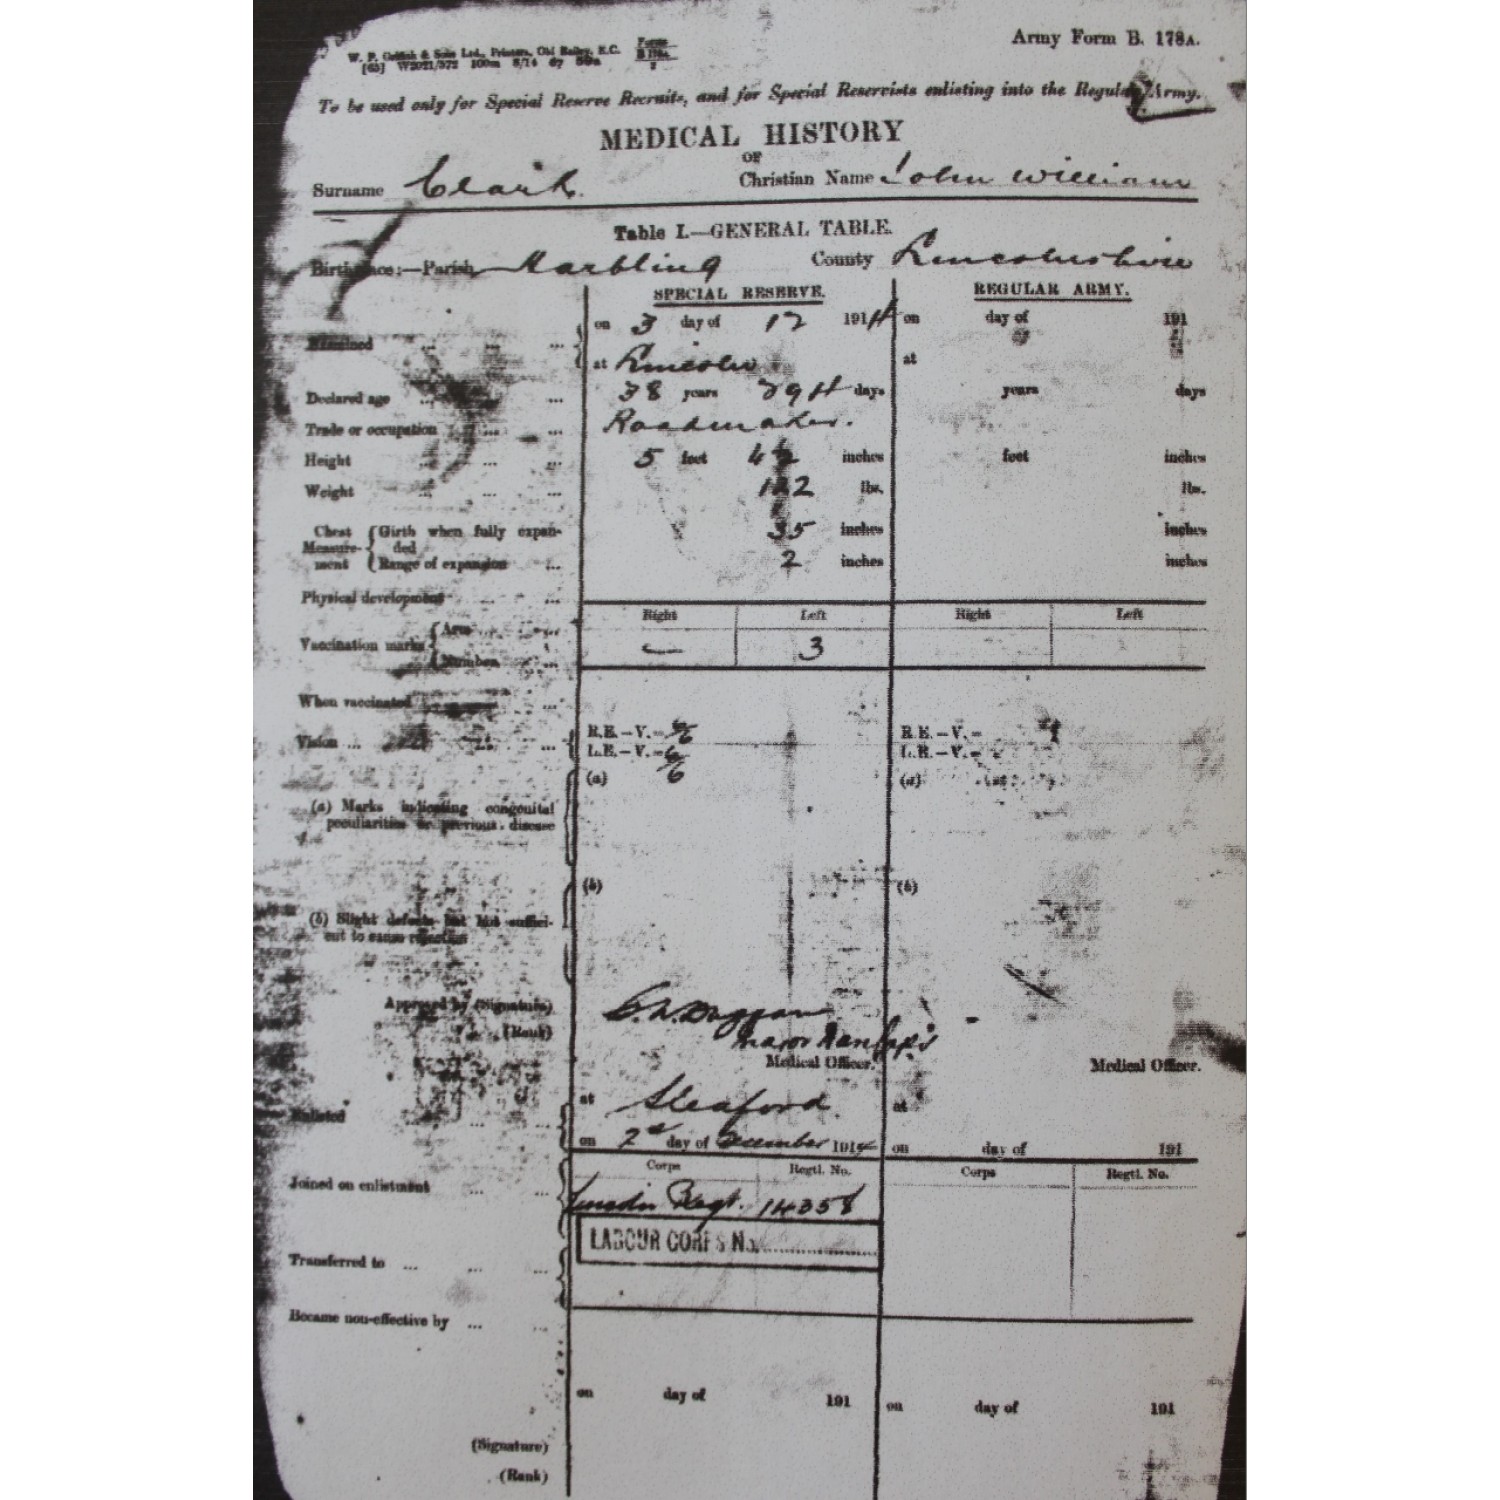 W. P. Griffith & Sons Ltd., Printers, Old Bailey, E.C. Forms
[65] W2021/372 100m 8/14 B 178A
Army Form B. 178A.
To be used only for Special Reserve Recruits, and for Special Reservists enlisting into the Regular Army.
MEDICAL HISTORY
OF
Surname Clark. Christian Name John William
Table I.—GENERAL TABLE.
Birthplace:—Parish County Lincolnshire
SPECIAL RESERVE. REGULAR ARMY.
Examined ... ... ... on 3 day of 12 1914 on day of 191
at Lincoln at
Declared age ... ... 38 years 294 days years days
Trade or occupation ... ... Roadmaker.
Height ... ... ... 5 feet inches feet inches
Weight ... ... ... lbs. lbs.
Chest Measurement { Girth when fully expanded 35 inches inches
Range of expansion ... 2 inches inches
Physical development ... ...
Right Left Right Left
Vaccination marks { Arm ... ...
Number ... ... — 3
When vaccinated ... ...
Vision ... ... ... ... R.E.—V.= 6/6 R.E.—V.=
L.E.—V.= 6/6 L.E.—V.=
(a) (a)
(a) Marks indicating congenital
peculiarities or previous disease
(b) (b)
(b) Slight defects but not suffici-
ent to cause rejection
Approved by (Signature)
(Rank) Major
Medical Officer. Medical Officer.
Enlisted ... ... at Sleaford at
on 2nd day of December 1914 on day of 191
Corps Regtl. No. Corps Regtl. No.
Joined on enlistment ... ... Lincoln Regt. 14358
LABOUR CORPS No.
Transferred to ... ... ...
Became non-effective by ... ...
on day of 191 on day of 191
(Signature)
(Rank)